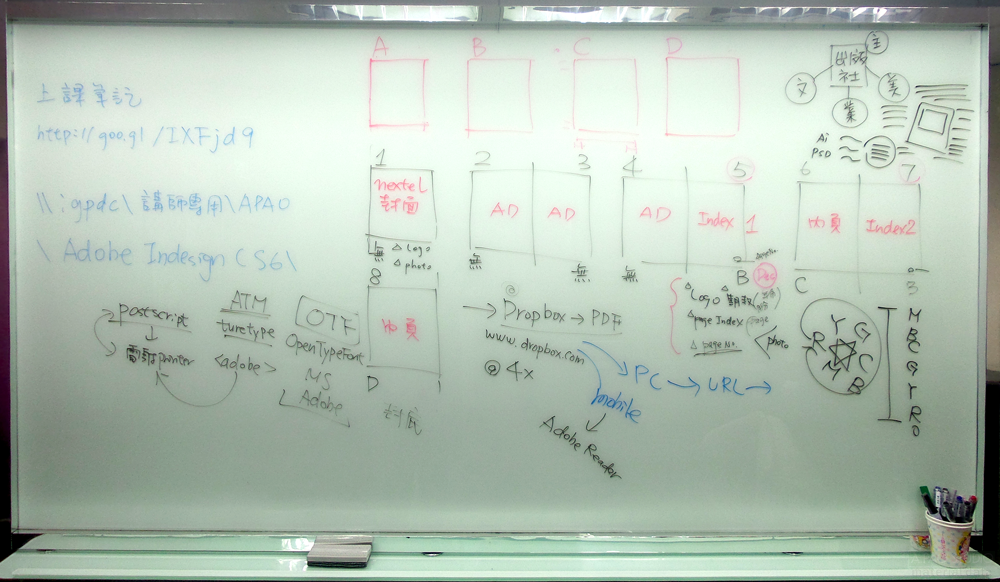 上課筆記
http://goo.gl/IXFjd9
\\igpdc\講師專用\APAO
\Adobe Indesign CS6\
A B C D
出版社
主
文
美
業
Ai
PSD
1
nextel
封面
無
△ Logo
△ photo
2 3
AD AD
無 無
4 5
AD Index 1
無
B
6 7
內頁 Index2
C
3
8
內頁
D
封底
postscript
雷射printer
ATM
turetype
<adobe>
OTF
OpenTypeFont
MS
Adobe
Dropbox → PDF
www.dropbox.com
@ 4x
PC → URL →
mobile
Adobe Reader
△ Logo △ 期數
△ page Index
△ page No.
photo
Y G C B M R
M
B
C
G
Y
R
O